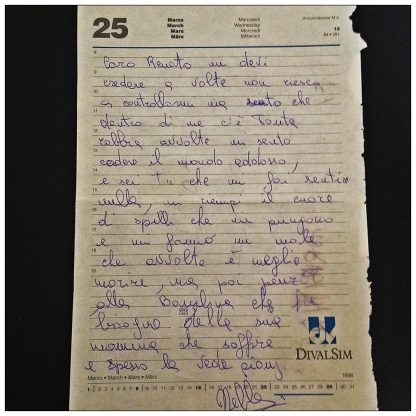 25
Marzo
March
Mars
März
Mercoledì
Wednesday
Mercredi
Mittwoch
Annunciazione M.V.
13
84 • 281
8
Caro Renato mi devi
credere a volte non riesco
a controllarmi ma sento che
dentro di me c'è tanta
rabbia avvolte mi sento
cadere il mondo addosso,
e sei tu che mi fai sentire
nulla, mi riempi il cuore
di spilli che mi pungono
e mi fanno un male
che avvolte è meglio
morire, ma poi penso
alla Bambina che ha
bisogno della sua
mamma che soffre
e spesso la vede piangere
DIVALSIM
Marzo • March • Mars • März
1998
1 2 3 4 5 6 7 8 9 10 11 12 13 14 15 16 17 18 19 20 21 22 23 24 25 26 27 28 29 30 31